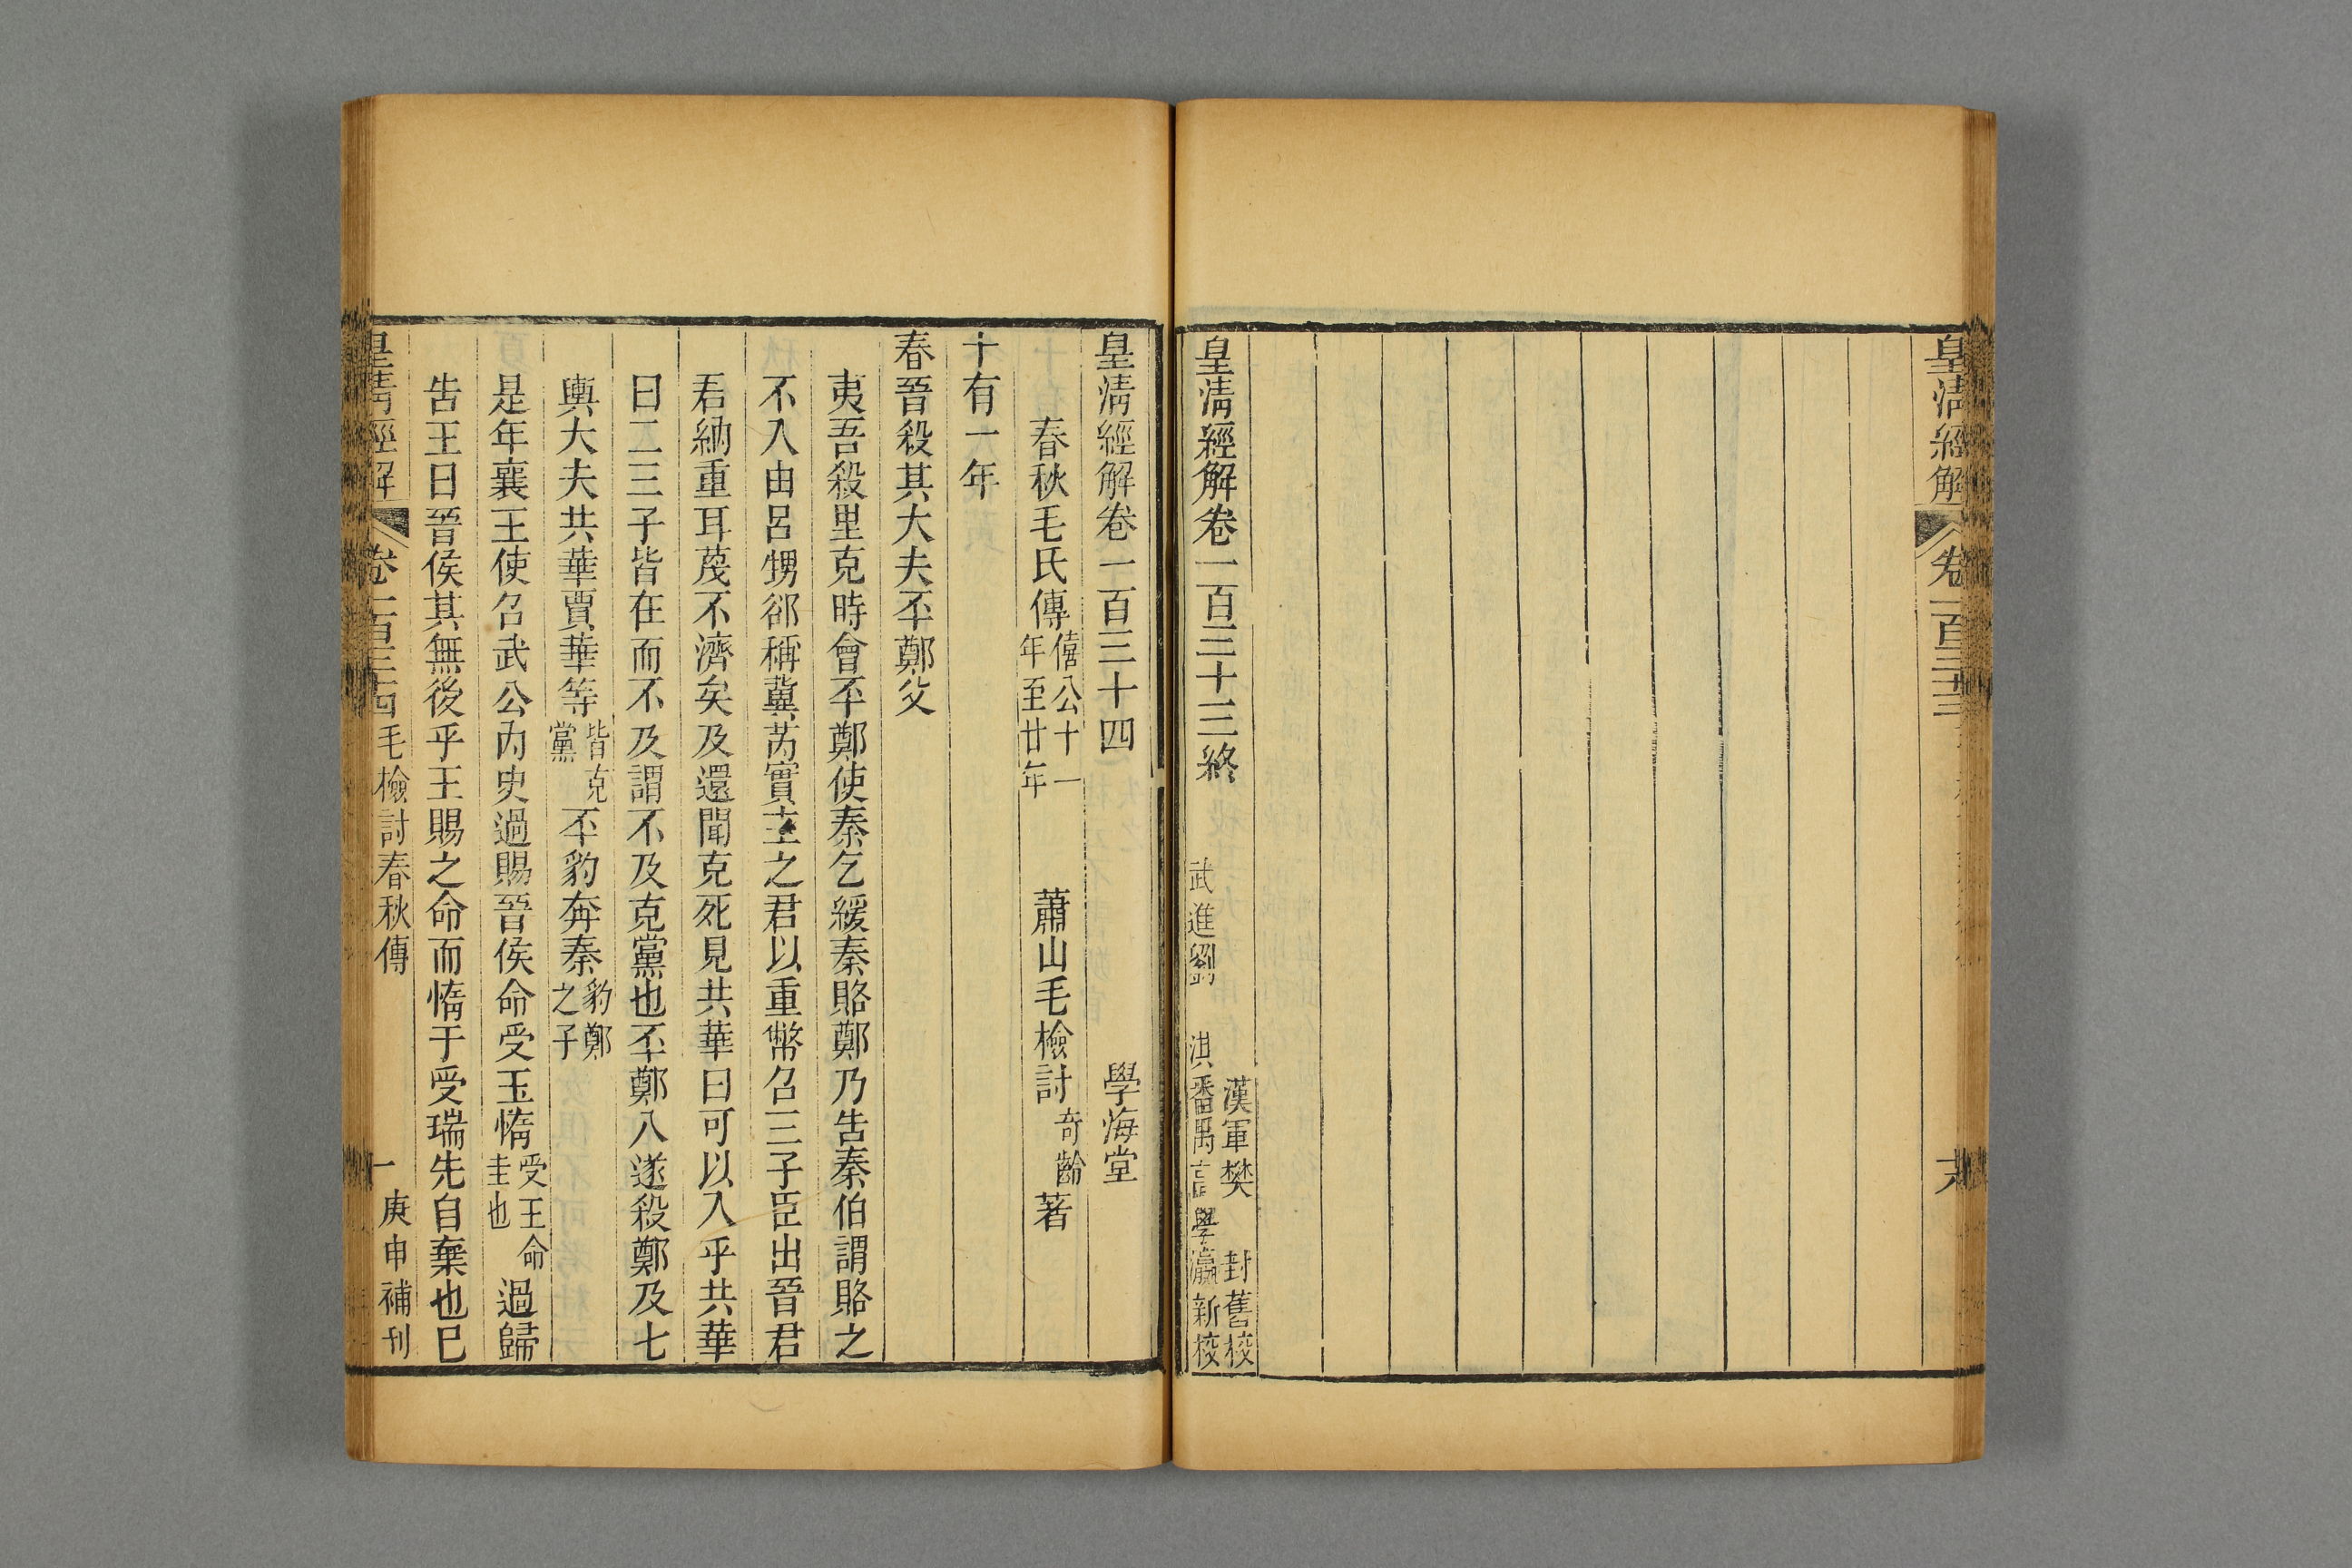 皇淸經解
卷一百三十三
皇淸經解卷一百三十三終
漢軍樊封舊校
武進劉淇
番禺高學瀛新校
皇淸經解卷一百三十四
學海堂
春秋毛氏傳
僖公十一
年至廿年
蕭山毛檢討奇齡著
十有一年
春晉殺其大夫㔻鄭父
夷吾殺里克時會㔻鄭使秦乞緩秦賂鄭乃吿秦伯謂賂之
不入由呂甥郤稱冀芮實主之君以重幣召三子臣出晉君
君納重耳蔑不濟矣及還聞克死見共華曰可以入乎共華
曰二三子皆在而不及謂不及克黨也㔻鄭入遂殺鄭及七
輿大夫共華賈華等
皆克
黨
㔻豹奔秦
豹鄭
之子
是年襄王使召武公內史過賜晉侯命受玉惰
受王命
圭也
過歸
吿王曰晉侯其無後乎王賜之命而惰于受瑞先自棄也巳
皇淸經解
卷一百三十四
毛檢討春秋傳
一
庚申補刊